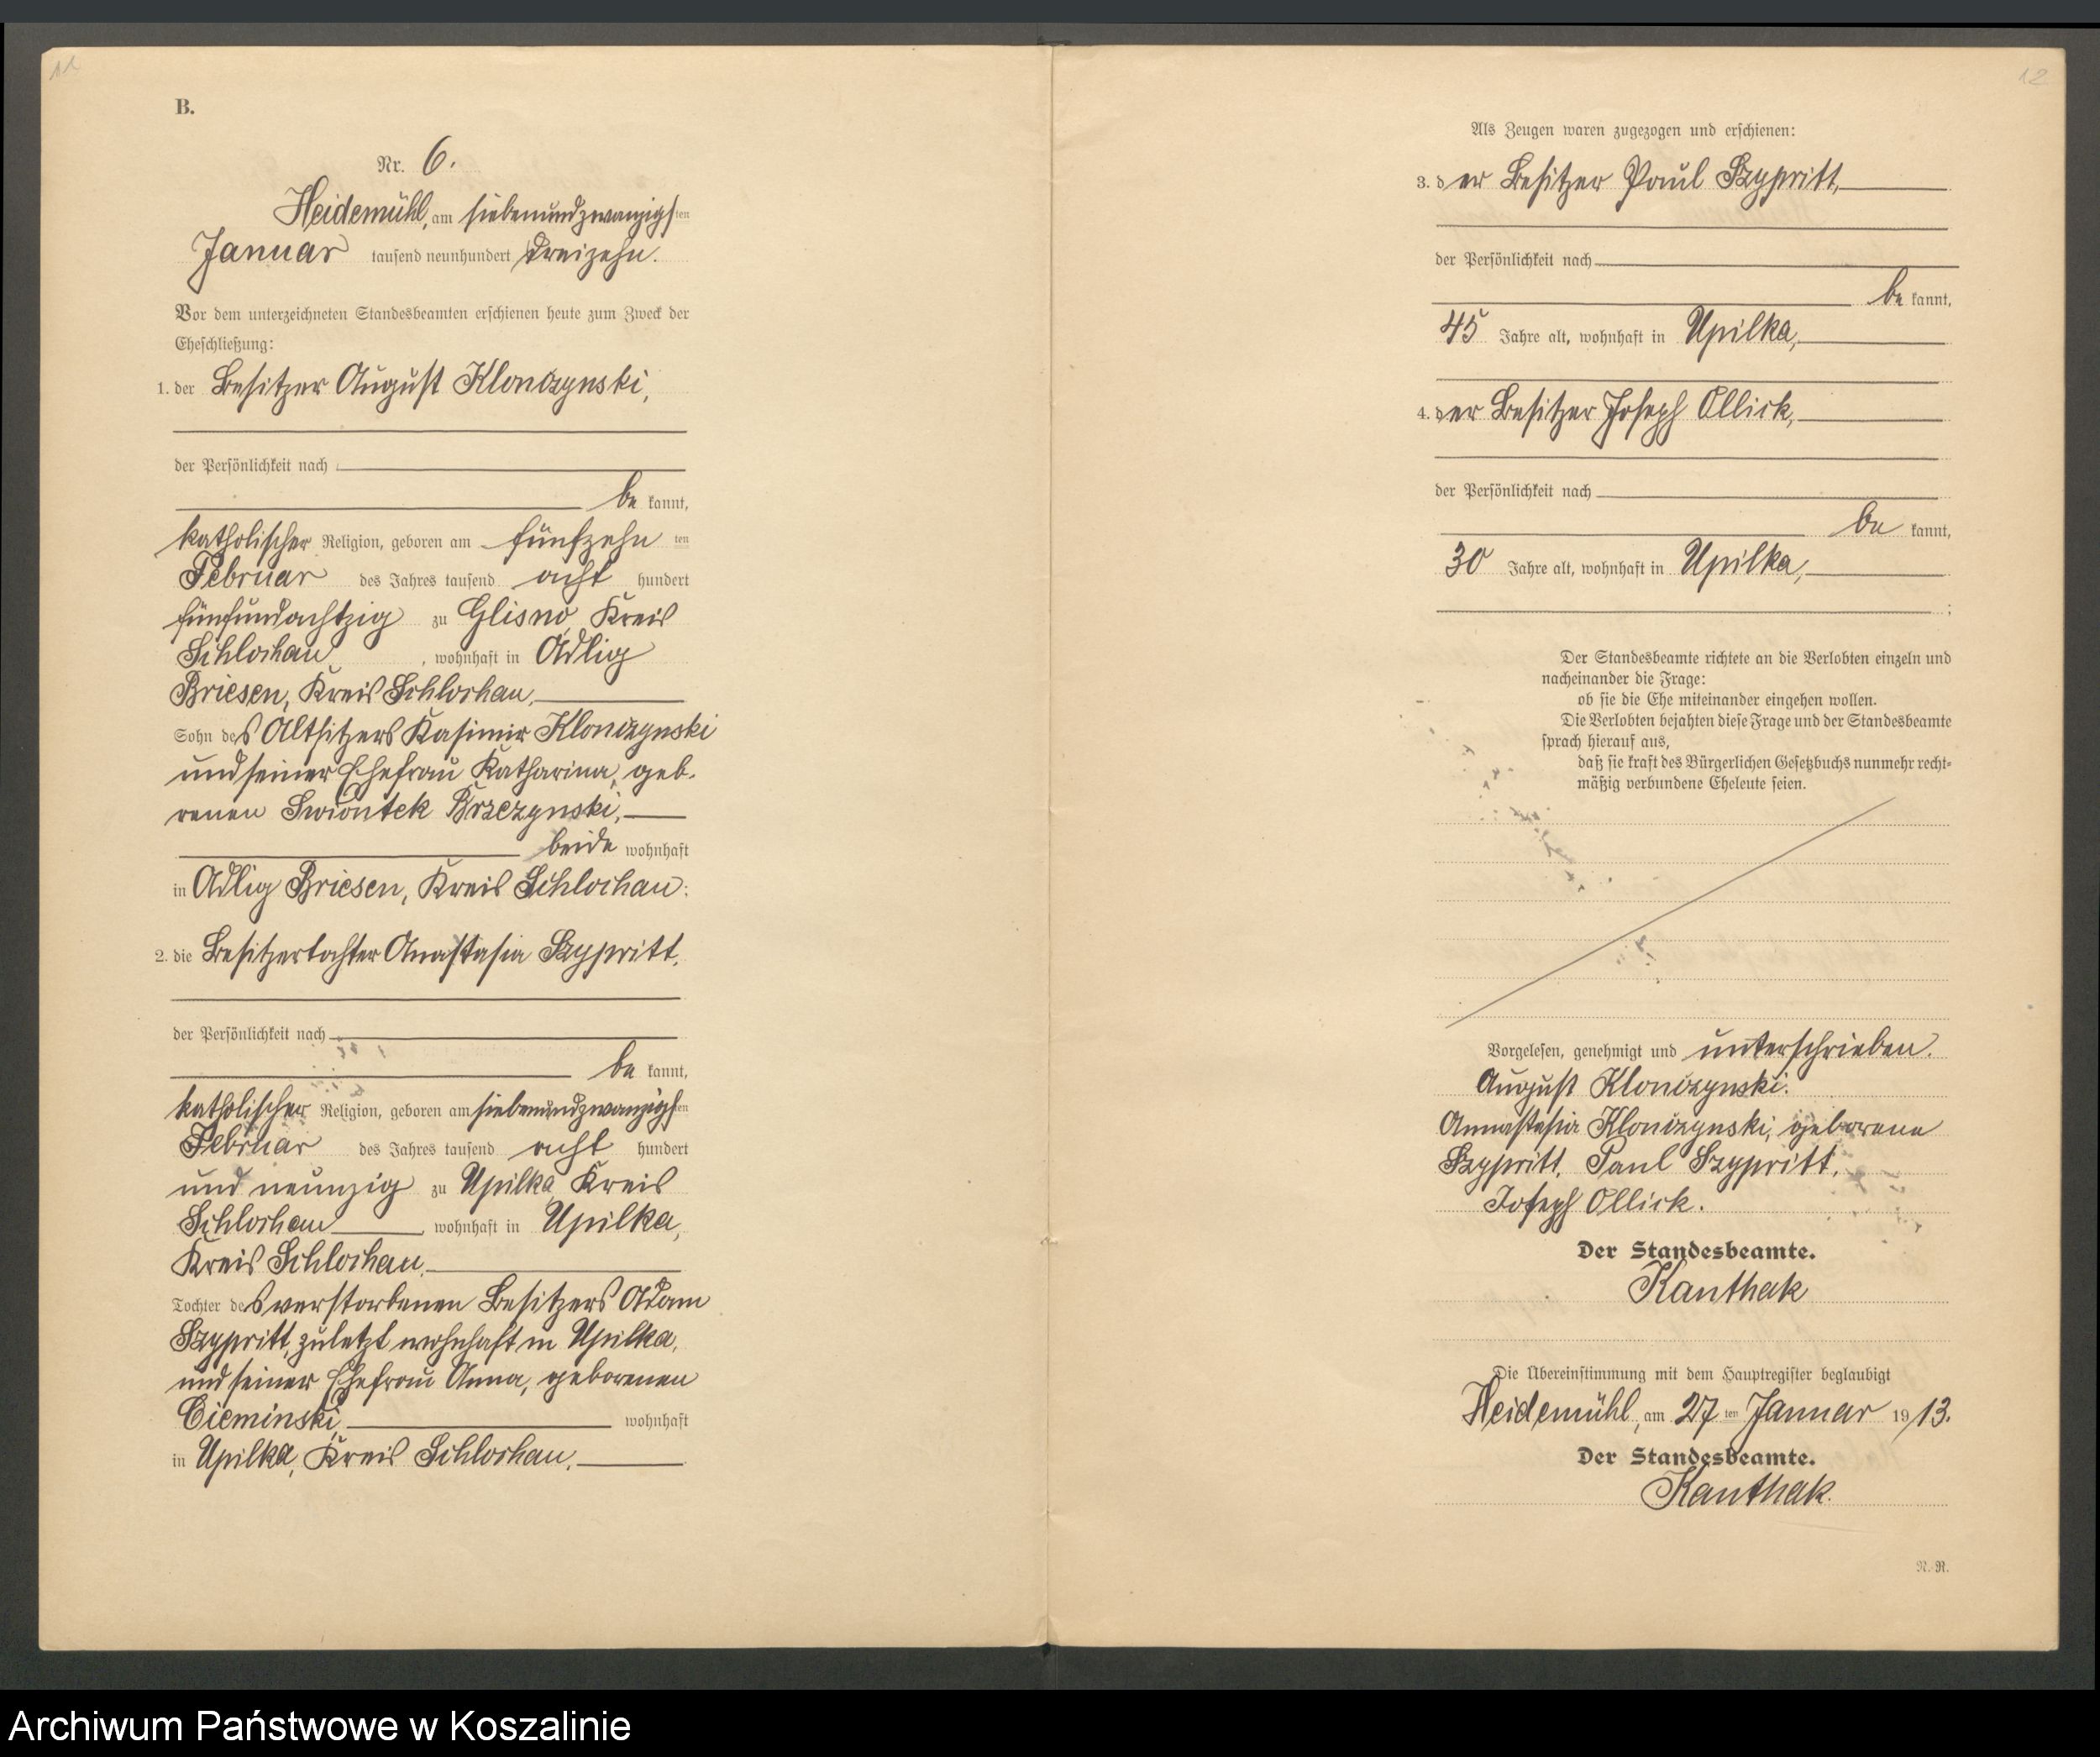 11
B.
Nr. 6.
Heidemühl, am siebenundzwanzigsten
Januar tausend neunhundert dreizehn.
Vor dem unterzeichneten Standesbeamten erschienen heute zum Zweck der
Eheschließung:
1. der Besitzer August Klonczynski,
der Persönlichkeit nach
be kannt,
katholischer Religion, geboren am fünfzehn ten
Februar des Jahres tausend acht hundert
fünfundachtzig zu Glisno, Kreis
Schlochau, wohnhaft in Adlig
Briesen, Kreis Schlochau,
Sohn des Altsitzers Kasimir Klonczynski
und seiner Ehefrau Katharina, geb-
renen Swiontek Brzezynski,
beide wohnhaft
in Adlig Briesen, Kreis Schlochau;
2. die Besitzertochter Anastasia Szypritt,
der Persönlichkeit nach
be kannt,
katholischer Religion, geboren am siebenundzwanzigsten
Februar des Jahres tausend acht hundert
und neunzig zu Upilka, Kreis
Schlochau, wohnhaft in Upilka,
Kreis Schlochau,
Tochter des verstorbenen Besitzers Adam
Szypritt, zuletzt wohnhaft in Upilka,
und seiner Ehefrau Anna, geborenen
Cieminski, wohnhaft
in Upilka, Kreis Schlochau.
12
Als Zeugen waren zugezogen und erschienen:
3. der Besitzer Paul Szypritt,
der Persönlichkeit nach
be kannt,
45 Jahre alt, wohnhaft in Upilka,
4. der Besitzer Joseph Ollick,
der Persönlichkeit nach
be kannt,
30 Jahre alt, wohnhaft in Upilka,
;
Der Standesbeamte richtete an die Verlobten einzeln und
nacheinander die Frage:
ob sie die Ehe miteinander eingehen wollen.
Die Verlobten bejahten diese Frage und der Standesbeamte
sprach hierauf aus,
daß sie kraft des Bürgerlichen Gesetzbuchs nunmehr recht-
mäßig verbundene Eheleute seien.
Vorgelesen, genehmigt und unterschrieben.
August Klonczynski.
Annastasia Klonczynski, geborene
Szypritt, Paul Szypritt,
Joseph Ollick.
Der Standesbeamte.
Kanthak
Die Übereinstimmung mit dem Hauptregister beglaubigt
Heidemühl, am 27 ten Januar 1913.
Der Standesbeamte.
Kanthak.
N. R.
Archiwum Państwowe w Koszalinie